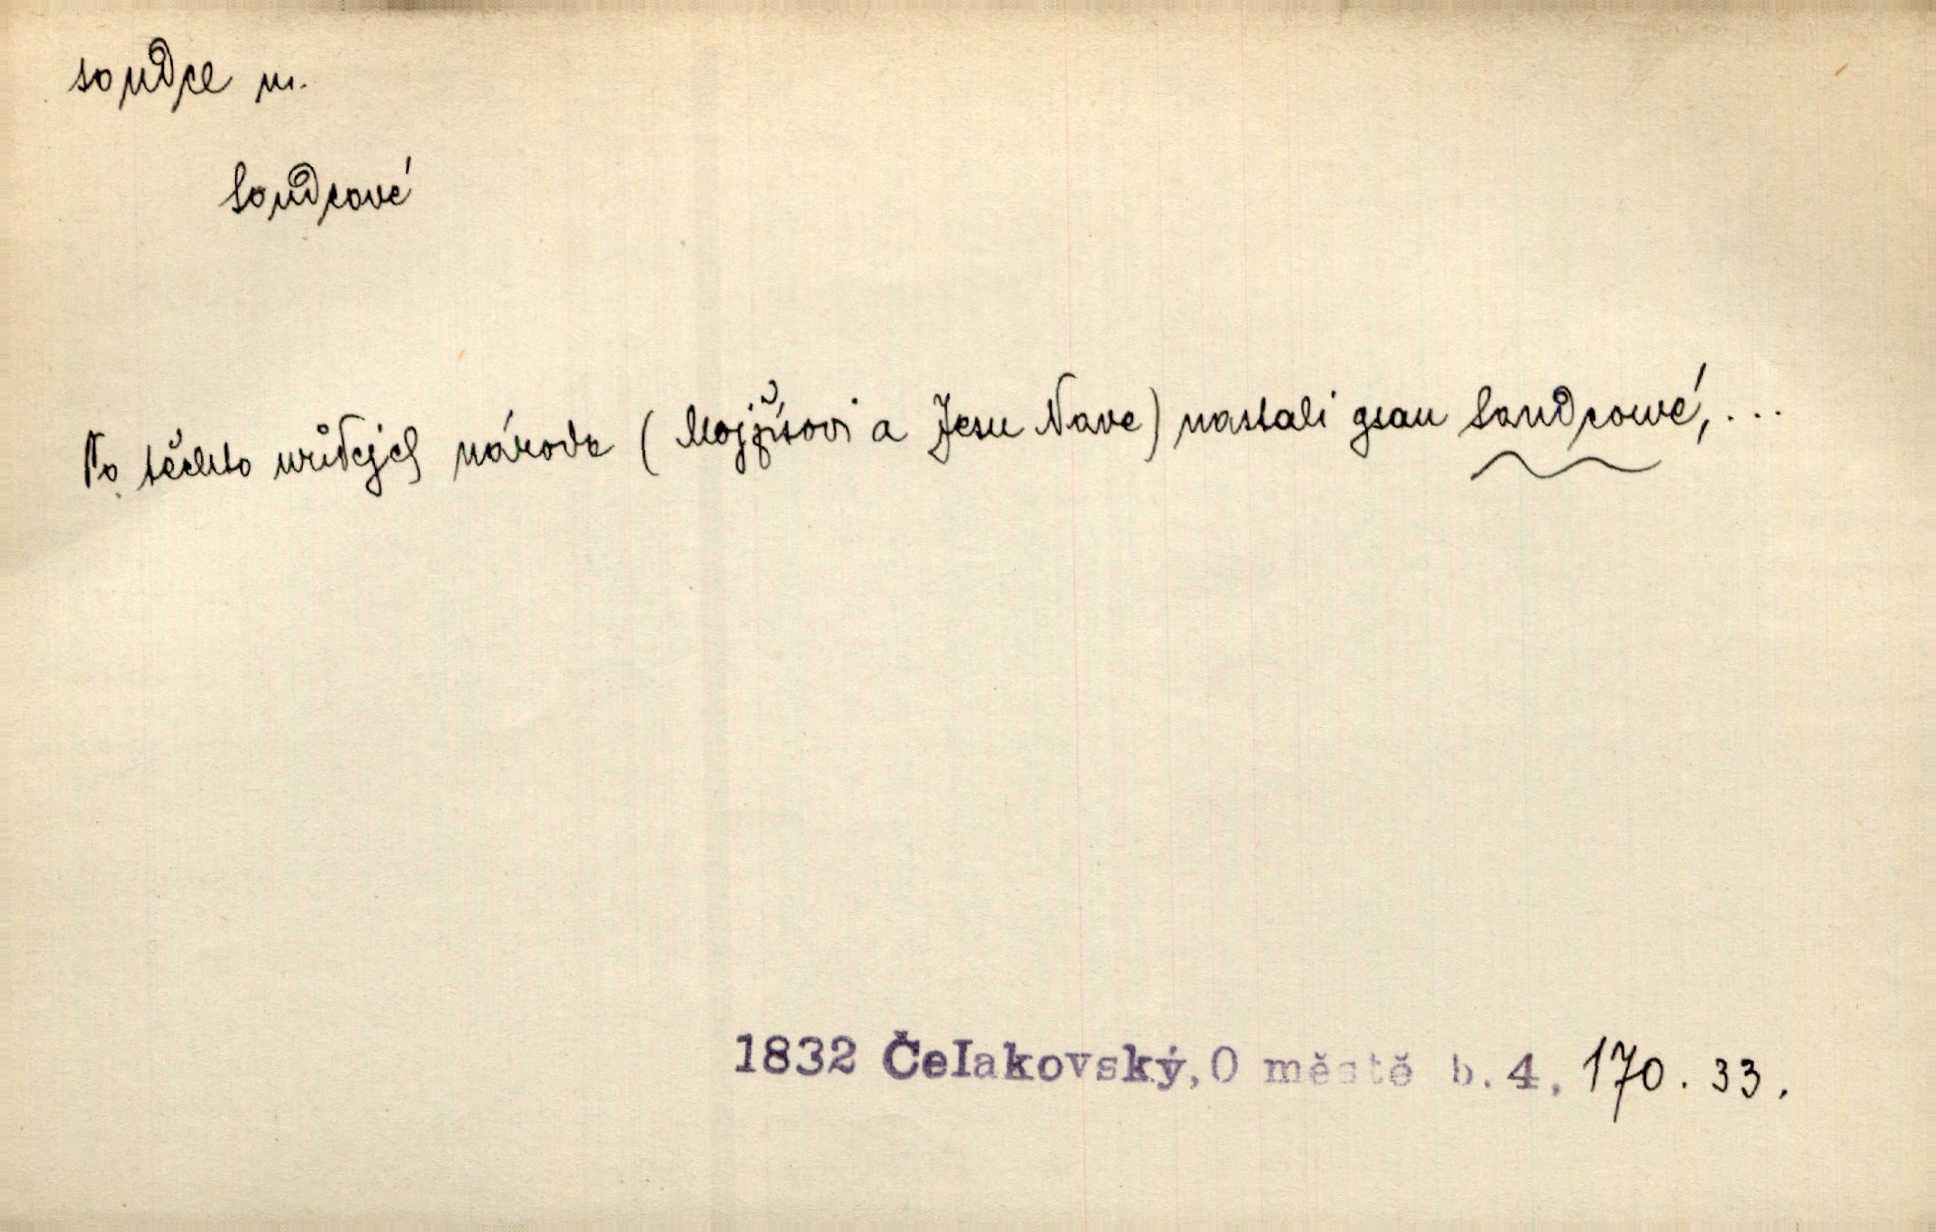 soudce m.
soudcové
Po těchto wůdcjch národa (Mojžíšovi a Jesu Nave) nastali gsau saudcowé, ...
1832 Čelakovský, O městě b. 4, 170. 33.